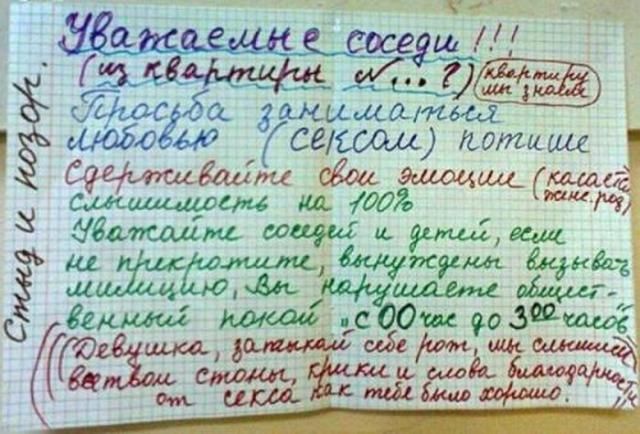 Стыд и позор.
Уважаемые соседи!!!
(из квартиры N...?)
квартиру
мы знаем
Просьба заниматься
любовью (сексом) потише
Сдерживайте свои эмоции (касается
женс. род)
слышимость на 100%
Уважайте соседей и детей, если
не прекратите, вынуждены вызывать
милицию, Вы нарушаете общест-
венный покой "с 00 час до 3 00 часов"
((Девушка, затыкай себе рот, мы слышим
все твои стоны, крики и слова благодарности
от секса как тебе было хорошо.